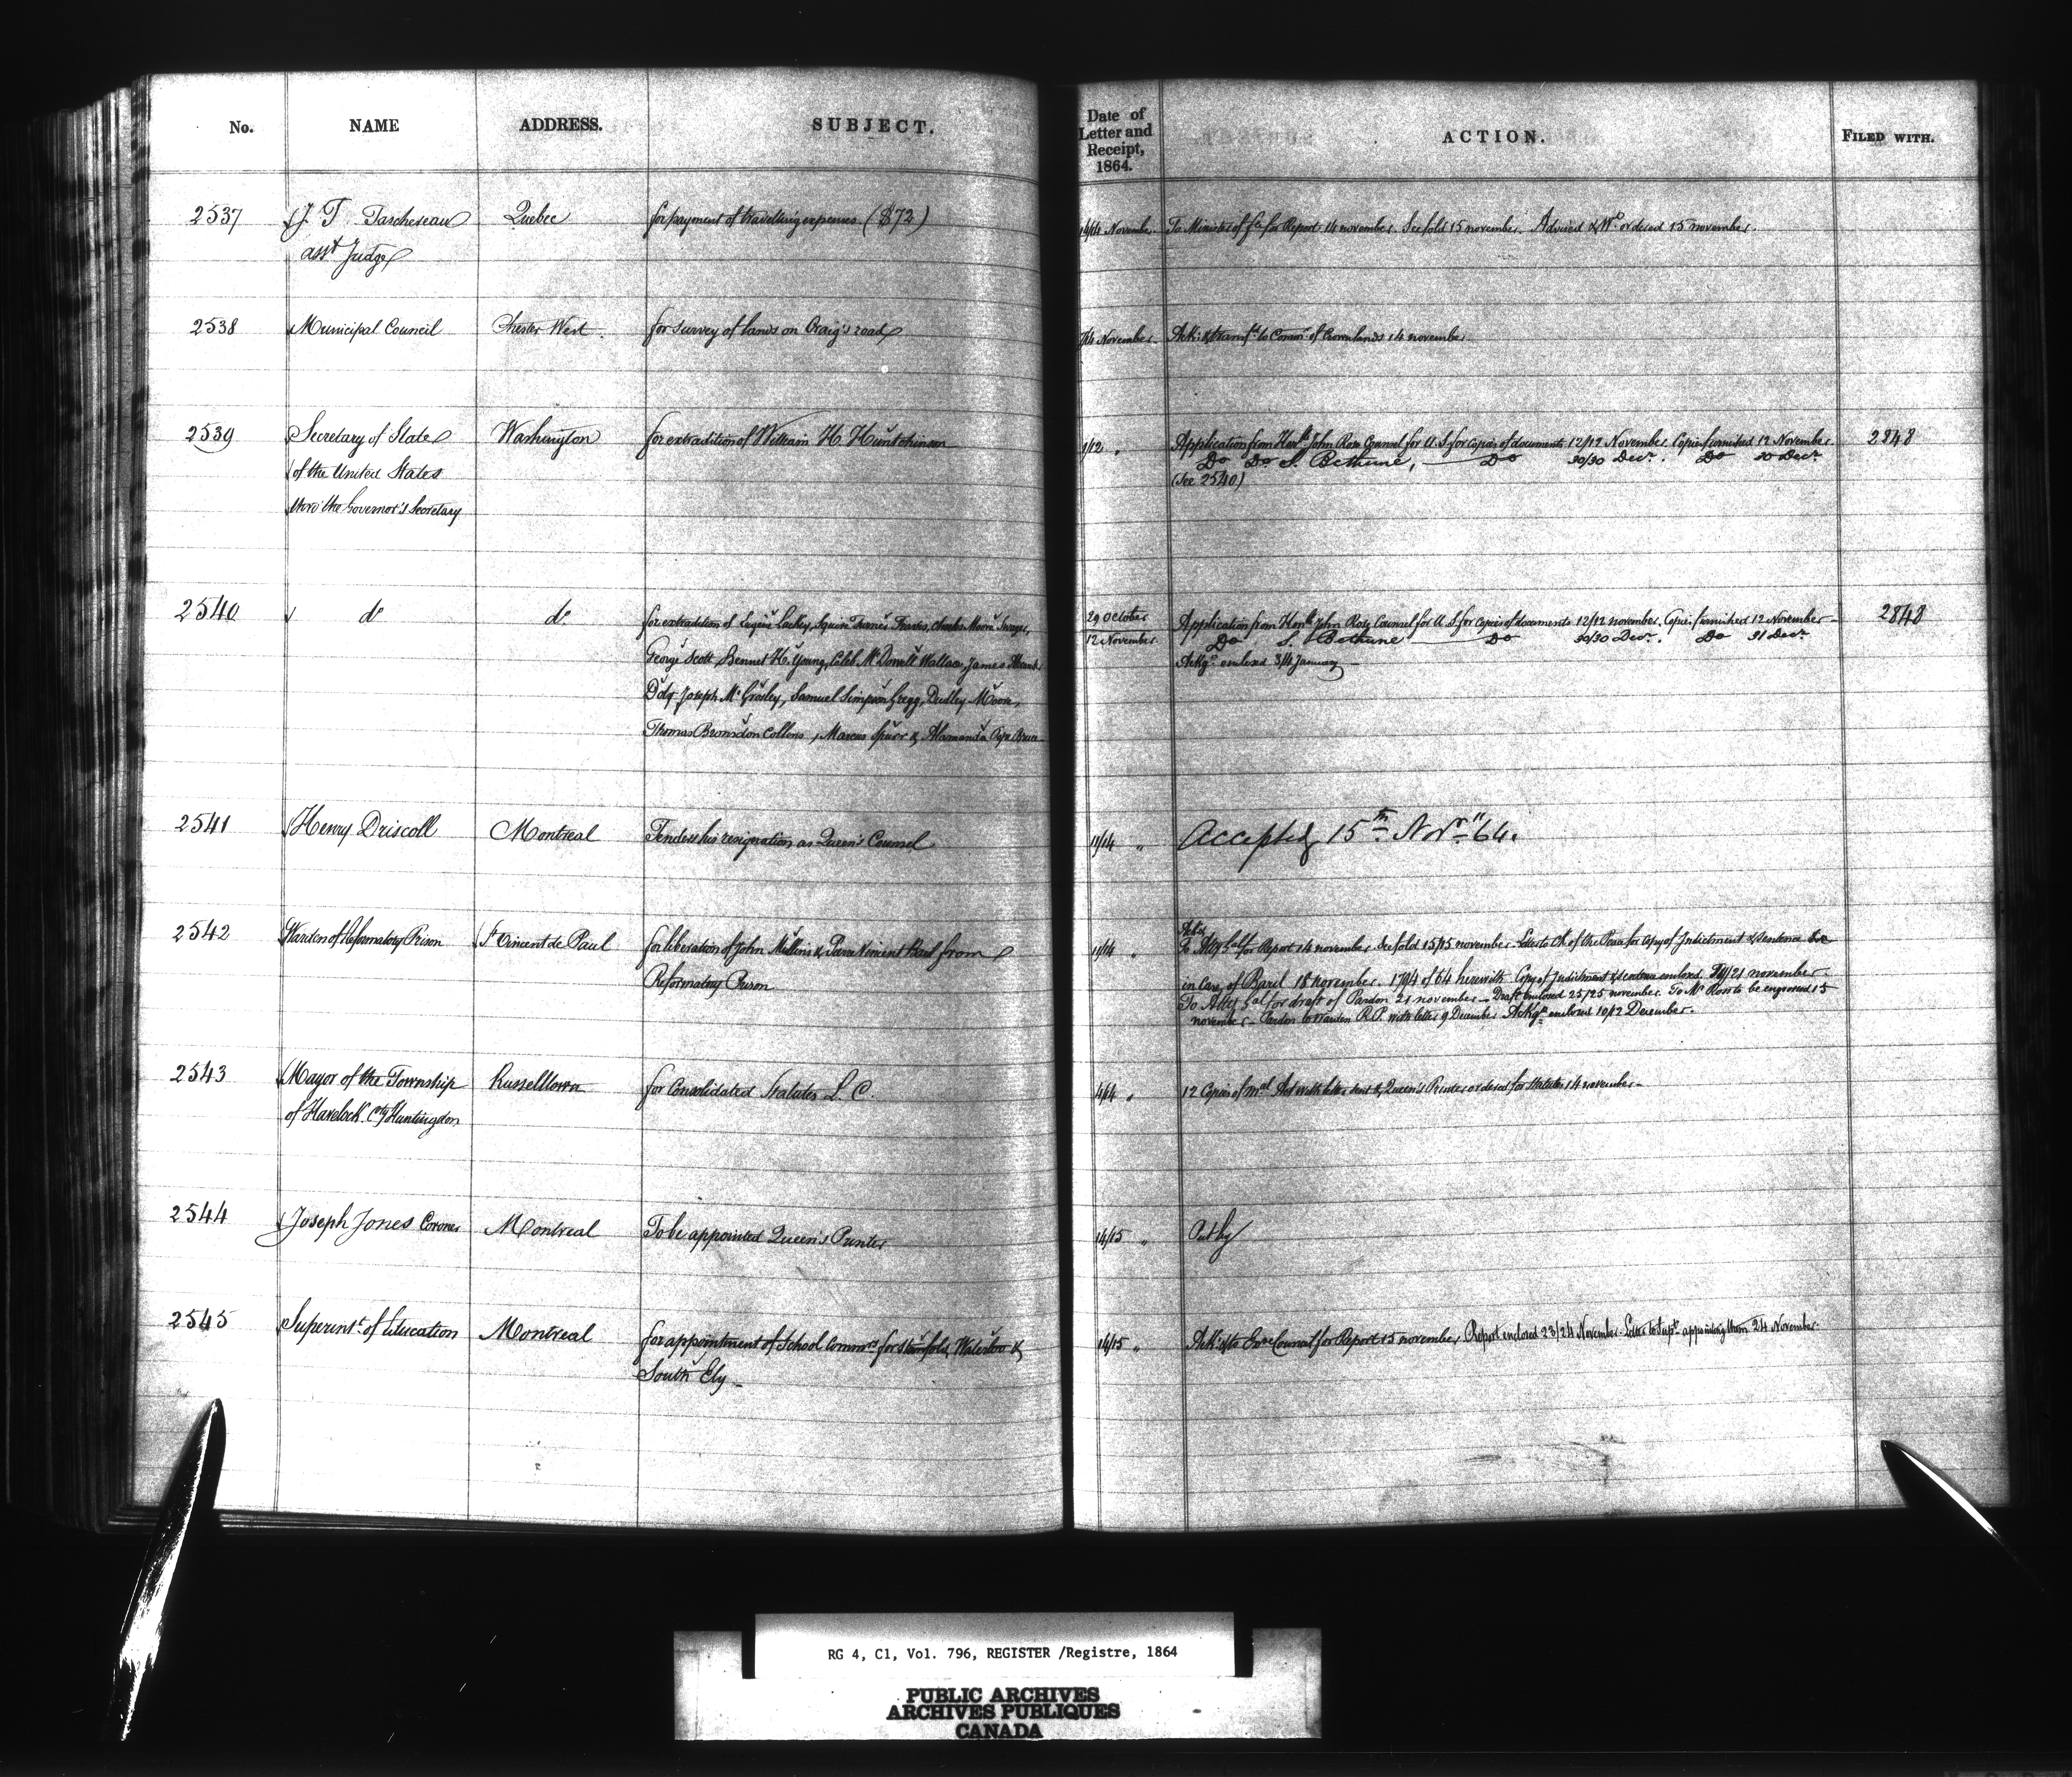 No. NAME ADDRESS. SUBJECT. Date of Letter and Receipt, 1864. ACTION. FILED WITH.
2537 J. T. Taschereau Quebec for payment of travelling expenses ($72) 14/14 November. To Minister of for Report 14 november. See fold 15 november. Advised & Wt ordered 15 november.
asst Judge
2538 Municipal Council Chester West. for survey of lands on Craig's road November. Ack: & transfd to Commr of Crown lands 14 november
2539 Secretary of State Washington for extradition of William H. Huntchinson 9/12 " Application from Honble John Rose Counsel for U.S. for copies of documents 12/12 November. Copies furnished 12 November. 2848
of the United States Do Do S. Bethune, — Do 30/30 Decr. Do 30 Decr
thro' the Governor's Secretary (See 2540)
2540 do do for extradition of Eugène Lackey, Squire Turner Travis, Charles Moore Swager, 29 October Application from Honble John Rose Counsel for U.S. for copies of documents 12/12 november. Copies furnished 12 November 2848
George Scott, Bennet H. Young, Caleb McDowell Wallace, James 12 November. Do S. Bethune — Do 30/30 Decr. Do 31 Decr
Doty Joseph McGrorley, Samuel Simpson Gregg, Dudley Moore, Ackgt enclosed 3/4 January —
Thomas Bronsdon Collins, Marcus Spurr & Alamanda Pope Bruce
2541 Henry Driscoll Montreal Tenders his resignation as Queen's Counsel 11/14 " Accepted 15th Novr "64.
2542 Warden of Reformatory Prison St Vincent de Paul for liberation of John Mullins & from 11/14 " Ack: To Atty Gal for Report 14 november. See fold 15/15 november. Letter to Ck of the Peace for copy of Indictment & sentence
Reformatory Prison in case of Baril 18 november. 1794 of 64 herewith. Copy of Indictment & sentence enclosed /21 november.
To Atty Gal for draft of Pardon 21 november — Draft enclosed 25/25 november. To Mr Ross to be engrossed 15
november — Pardon to Warden R.P. with letter 9 December Ackgt enclosed 10/12 December.
2543 Mayor of the Township Russelltown for Consolidated Statutes L. C. 14/14 " 12 Copies of Act with letter sent & Queen's Printer ordered for Statutes 14 november —
of Havelock Cty Huntingdon
2544 Joseph Jones Coroner Montreal To be appointed Queen's Printer 14/15 " Put by
2545 Superintt of Education Montreal for appointment of School Commrs for Stanfold, Waterloo & 14/15 " Ack: & to Exve Council for Report 15 november, Report enclosed 23/24 November. Letter to Supt appointing them 24 November.
South Ely —
RG 4, C1, Vol. 796, REGISTER /Registre, 1864
PUBLIC ARCHIVES
ARCHIVES PUBLIQUES
CANADA